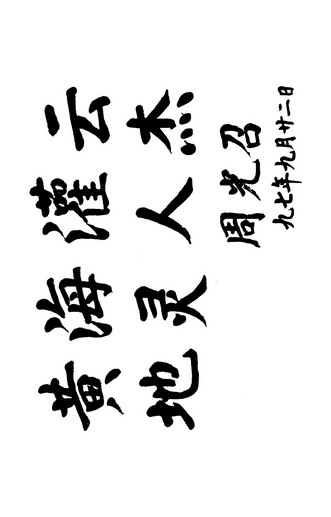 黄海灌云
地灵人杰
周光召
九七年九月廿二日